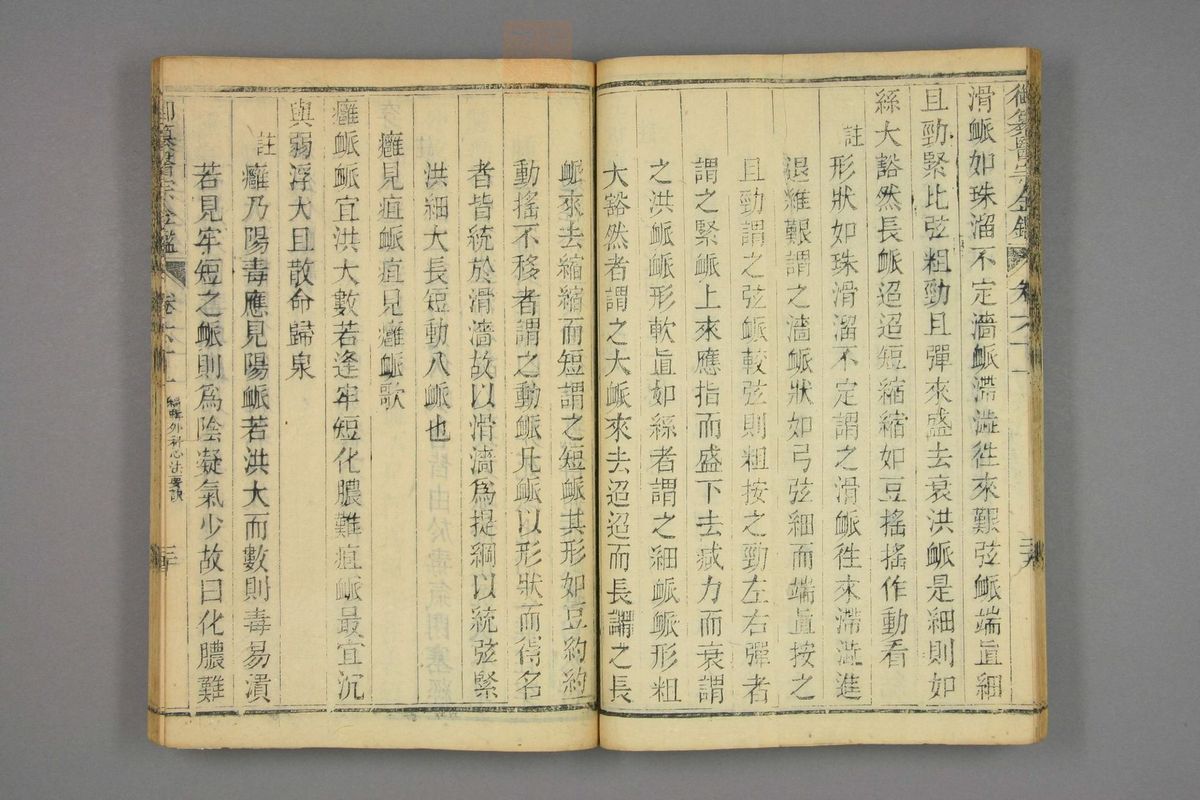 御纂醫宗金鑑 卷六十一
滑䘑如珠溜不定濇䘑滯澁徃來艱弦䘑端直細
且勁緊比弦粗勁且彈來盛去衰洪䘑是細則如
絲大豁然長䘑迢迢短縮縮如豆搖搖作動看
註形狀如珠滑溜不定謂之滑䘑徃來滯澁進
退維艱謂之濇䘑狀如弓弦細而端直按之
且勁謂之弦䘑較弦則粗按之勁左右彈者
謂之緊䘑上來應指而盛下去減力而衰謂
之洪䘑䘑形軟直如絲者謂之細䘑䘑形粗
大豁然者謂之大䘑來去迢迢而長謂之長
䘑來去縮縮而短謂之短䘑其形如豆約約
動搖不移者謂之動䘑凡䘑以形狀而得名
者皆統於滑濇故以滑濇爲提綱以統弦緊
洪細大長短動八䘑也
癰見疽䘑疽見癰䘑歌
癰䘑䘑宜洪大數若逢牢短化膿難疽䘑最宜沉
與弱浮大且散命歸泉
註癰乃陽毒應見陽䘑若洪大而數則毒易潰
若見牢短之䘑則爲陰凝氣少故曰化膿難
御纂醫宗金鑑 卷六十一 編輯外科心法要訣